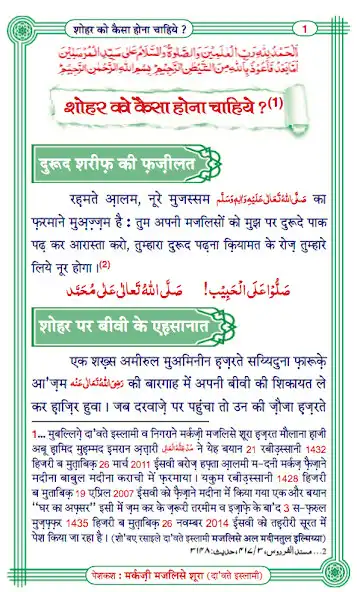 शोहर को कैसा होना चाहिये ?
1
اَلْحَمْدُ لِلّٰهِ رَبِّ الْعٰلَمِيْنَ وَالصَّلٰوةُ وَالسَّلَامُ عَلٰى سَيِّدِ الْمُرْسَلِيْنَ
اَمَّا بَعْدُ فَاَعُوْذُ بِاللّٰهِ مِنَ الشَّيْطٰنِ الرَّجِيْمِ بِسْمِ اللّٰهِ الرَّحْمٰنِ الرَّحِيْمِ
शोहर को कैसा होना चाहिये ?(1)
दुरूद शरीफ़ की फ़ज़ीलत
रहमते आलम, नूरे मुजस्सम صَلَّى اللّٰهُ تَعَالٰى عَلَيْهِ وَاٰلِهٖ وَسَلَّم का
फ़रमाने मुअ़ज़्ज़म है : तुम अपनी मजलिसों को मुझ पर दुरूदे पाक
पढ़ कर आरास्ता करो, तुम्हारा दुरूद पढ़ना क़ियामत के रोज़ तुम्हारे
लिये नूर होगा ।(2)
صَلُّوْا عَلَى الْحَبِيْب! صَلَّى اللّٰهُ تَعَالٰى عَلٰى مُحَمَّد
शोहर पर बीवी के एहसानात
एक शख़्स अमीरुल मुअमिनीन ह़ज़रते सय्यिदुना फ़ारूक़े
आ'ज़म رَضِىَ اللّٰهُ تَعَالٰى عَنْه की बारगाह में अपनी बीवी की शिकायत ले
कर ह़ाज़िर हुवा । जब दरवाज़े पर पहुंचा तो उन की ज़ौजा ह़ज़रते
1... मुबल्लिग़े दा'वते इस्लामी व निगराने मर्कज़ी मजलिसे शूरा ह़ज़रत मौलाना ह़ाजी
अबू ह़ामिद मुह़म्मद इमरान अ़त्तारी ने येह बयान 21 रबीउ़स्सानी 1432
हिजरी ब मुत़ाबिक़ 26 मार्च 2011 ईसवी बरोज़ हफ़्ता आ़लमी म-दनी मर्कज़ फ़ैज़ाने
मदीना बाबुल मदीना कराची में फ़रमाया । यकुम रबीउ़स्सानी 1428 हिजरी
ब मुत़ाबिक़ 19 एप्रिल 2007 ईसवी को फ़ैज़ाने मदीना में किया गया एक और बयान
"घर का अफ़्सर" इसी में ज़म कर के ज़रूरी तरमीम व इज़ाफ़े के बा'द 3 स-फ़रुल
मुज़फ़्फ़र 1435 हिजरी ब मुत़ाबिक़ 26 नवम्बर 2014 ईसवी को तह़रीरी सूरत में
पेश किया जा रहा है । (शो'बए रसाइले दा'वते इस्लामी मजलिसे अल मदीनतुल इ़ल्मिय्या)
2... مسند الفردوس، ٤١٧/٣، حدیث: ٣١٤٨
पेशकश : मर्कज़ी मजलिसे शूरा (दा'वते इस्लामी)